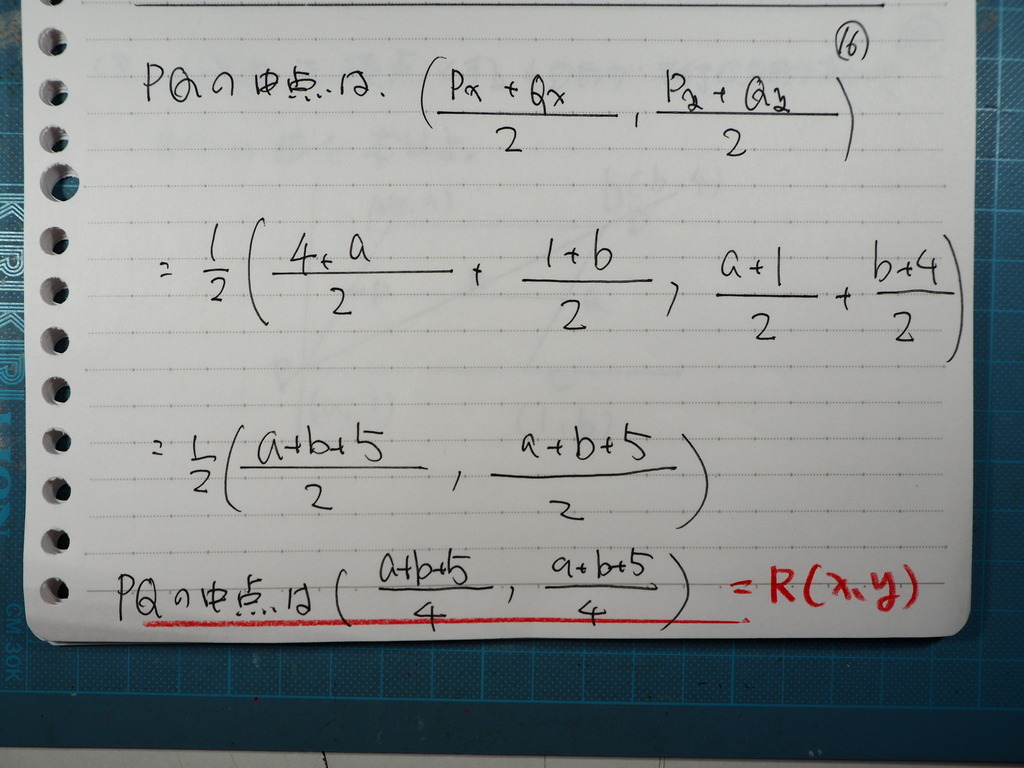 ⑯
PQの中点は. (Px + Qx / 2 , Py + Qy / 2)
= 1/2 (4+a / 2 + 1+b / 2 , a+1 / 2 + b+4 / 2)
= 1/2 (a+b+5 / 2 , a+b+5 / 2)
PQの中点は (a+b+5 / 4 , a+b+5 / 4) = R(x,y)
LION
CM-30K